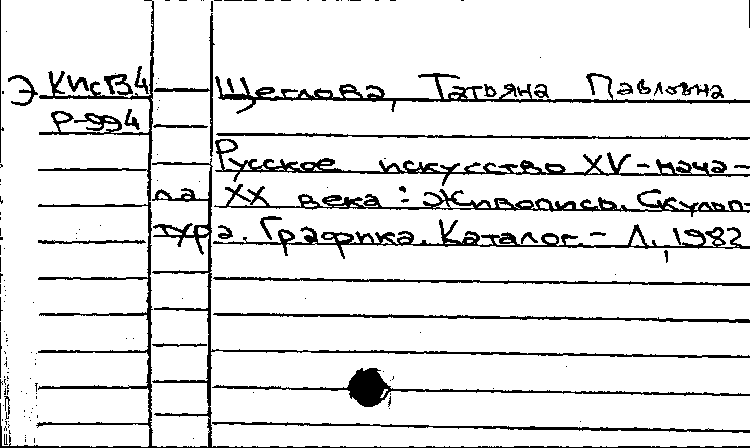 Э КИсВ4 Щеглова, Татьяна Павловна
Р-994
Русское искусство XV-нача-
ла XX века : Живопись. Скульп-
тура. Графика. Каталог. - Л., 1982